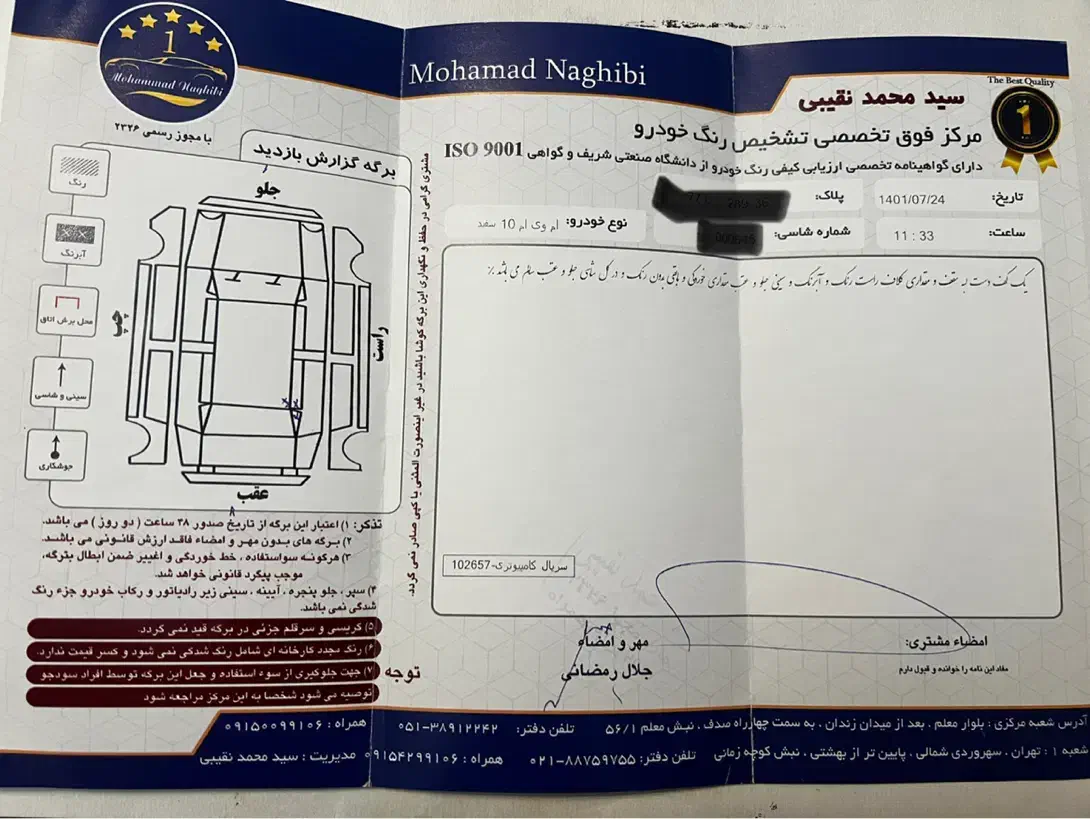 Mohammad Naghibi
1
با مجوز رسمی ۲۳۲۶
Mohamad Naghibi
The Best Quality
1
سید محمد نقیبی
مرکز فوق تخصصی تشخیص رنگ خودرو
دارای گواهینامه تخصصی ارزیابی کیفی رنگ خودرو از دانشگاه صنعتی شریف و گواهی ISO 9001
تاریخ: 1401/07/24
پلاک:
ساعت: 11 : 33
شماره شاسی:
نوع خودرو: ام وی ام 10 سفید
یک کف دست لبه سقف و مقداری کلاف راست رنگ و آبرنگ و سینی جلو و عقب مقداری خوردگی و باقی بدون رنگ و در کل شاسی جلو و عقب سالم می باشد
سریال کامپیوتری-102657
برگه گزارش بازدید
جلو
چپ
راست
عقب
رنگ
آبرنگ
محل برش اتاق
سینی و شاسی
جوشکاری
مشتری گرامی در حفظ و نگهداری این برگه کوشا باشید در غیر اینصورت المثنی یا کپی صادر نمی گردد.
تذکر: ۱) اعتبار این برگه از تاریخ صدور ۴۸ ساعت ( دو روز ) می باشد.
۲) برگه های بدون مهر و امضاء فاقد ارزش قانونی می باشد.
۳) هرگونه سواستفاده ، خط خوردگی و اغییر ضمن ابطال بترگه،
موجب پیگرد قانونی خواهد شد.
۴) سپر ، جلو پنجره ، آیینه ، سینی زیر رادیاتور و رکاب خودرو جزء رنگ
شدگی نمی باشد.
۵) گریسی و سرقلم جزئی در برگه قید نمی گردد.
۶) رنگ مجدد کارخانه ای شامل رنگ شدگی نمی شود و کسر قیمت ندارد.
توجه
۷) جهت جلوگیری از سوء استفاده و جعل این برگه توسط افراد سودجو
توصیه می شود شخصا به این مرکز مراجعه شود
مهر و امضاء
جلال رمضانی
امضاء مشتری:
مفاد این نامه را خوانده و قبول دارم
آدرس شعبه مرکزی : بلوار معلم . بعد از میدان زندان . به سمت چهارراه صدف . نبش معلم ۵۶/۱ تلفن دفتر: ۰۵۱-۳۸۹۱۲۲۴۲ همراه : ۰۹۱۵۰۰۹۹۱۰۶
شعبه ۱ : تهران . سهروردی شمالی . پایین تر از بهشتی . نبش کوچه زمانی تلفن دفتر: ۰۲۱-۸۸۷۵۹۷۵۵ همراه : ۰۹۱۵۴۲۹۹۱۰۶ مدیریت : سید محمد نقیبی